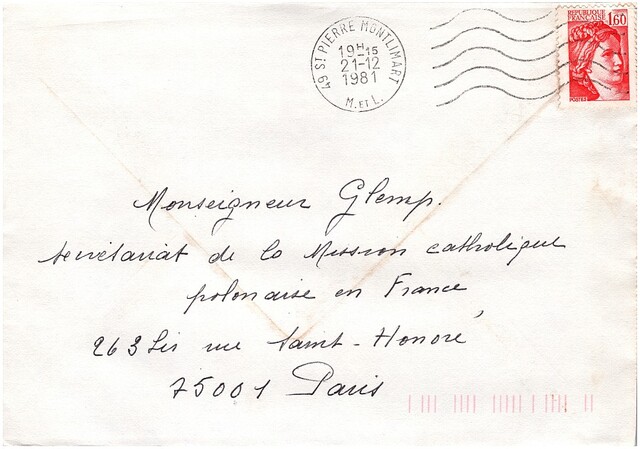 49 ST PIERRE MONTLIMART
19H15
21-12
1981
M. ET L.
REPUBLIQUE
FRANÇAISE
1,60
POSTES
Monseigneur Glemp.
secrétariat de la Mission catholique
polonaise en France
263 bis rue Saint-Honoré
75001 Paris